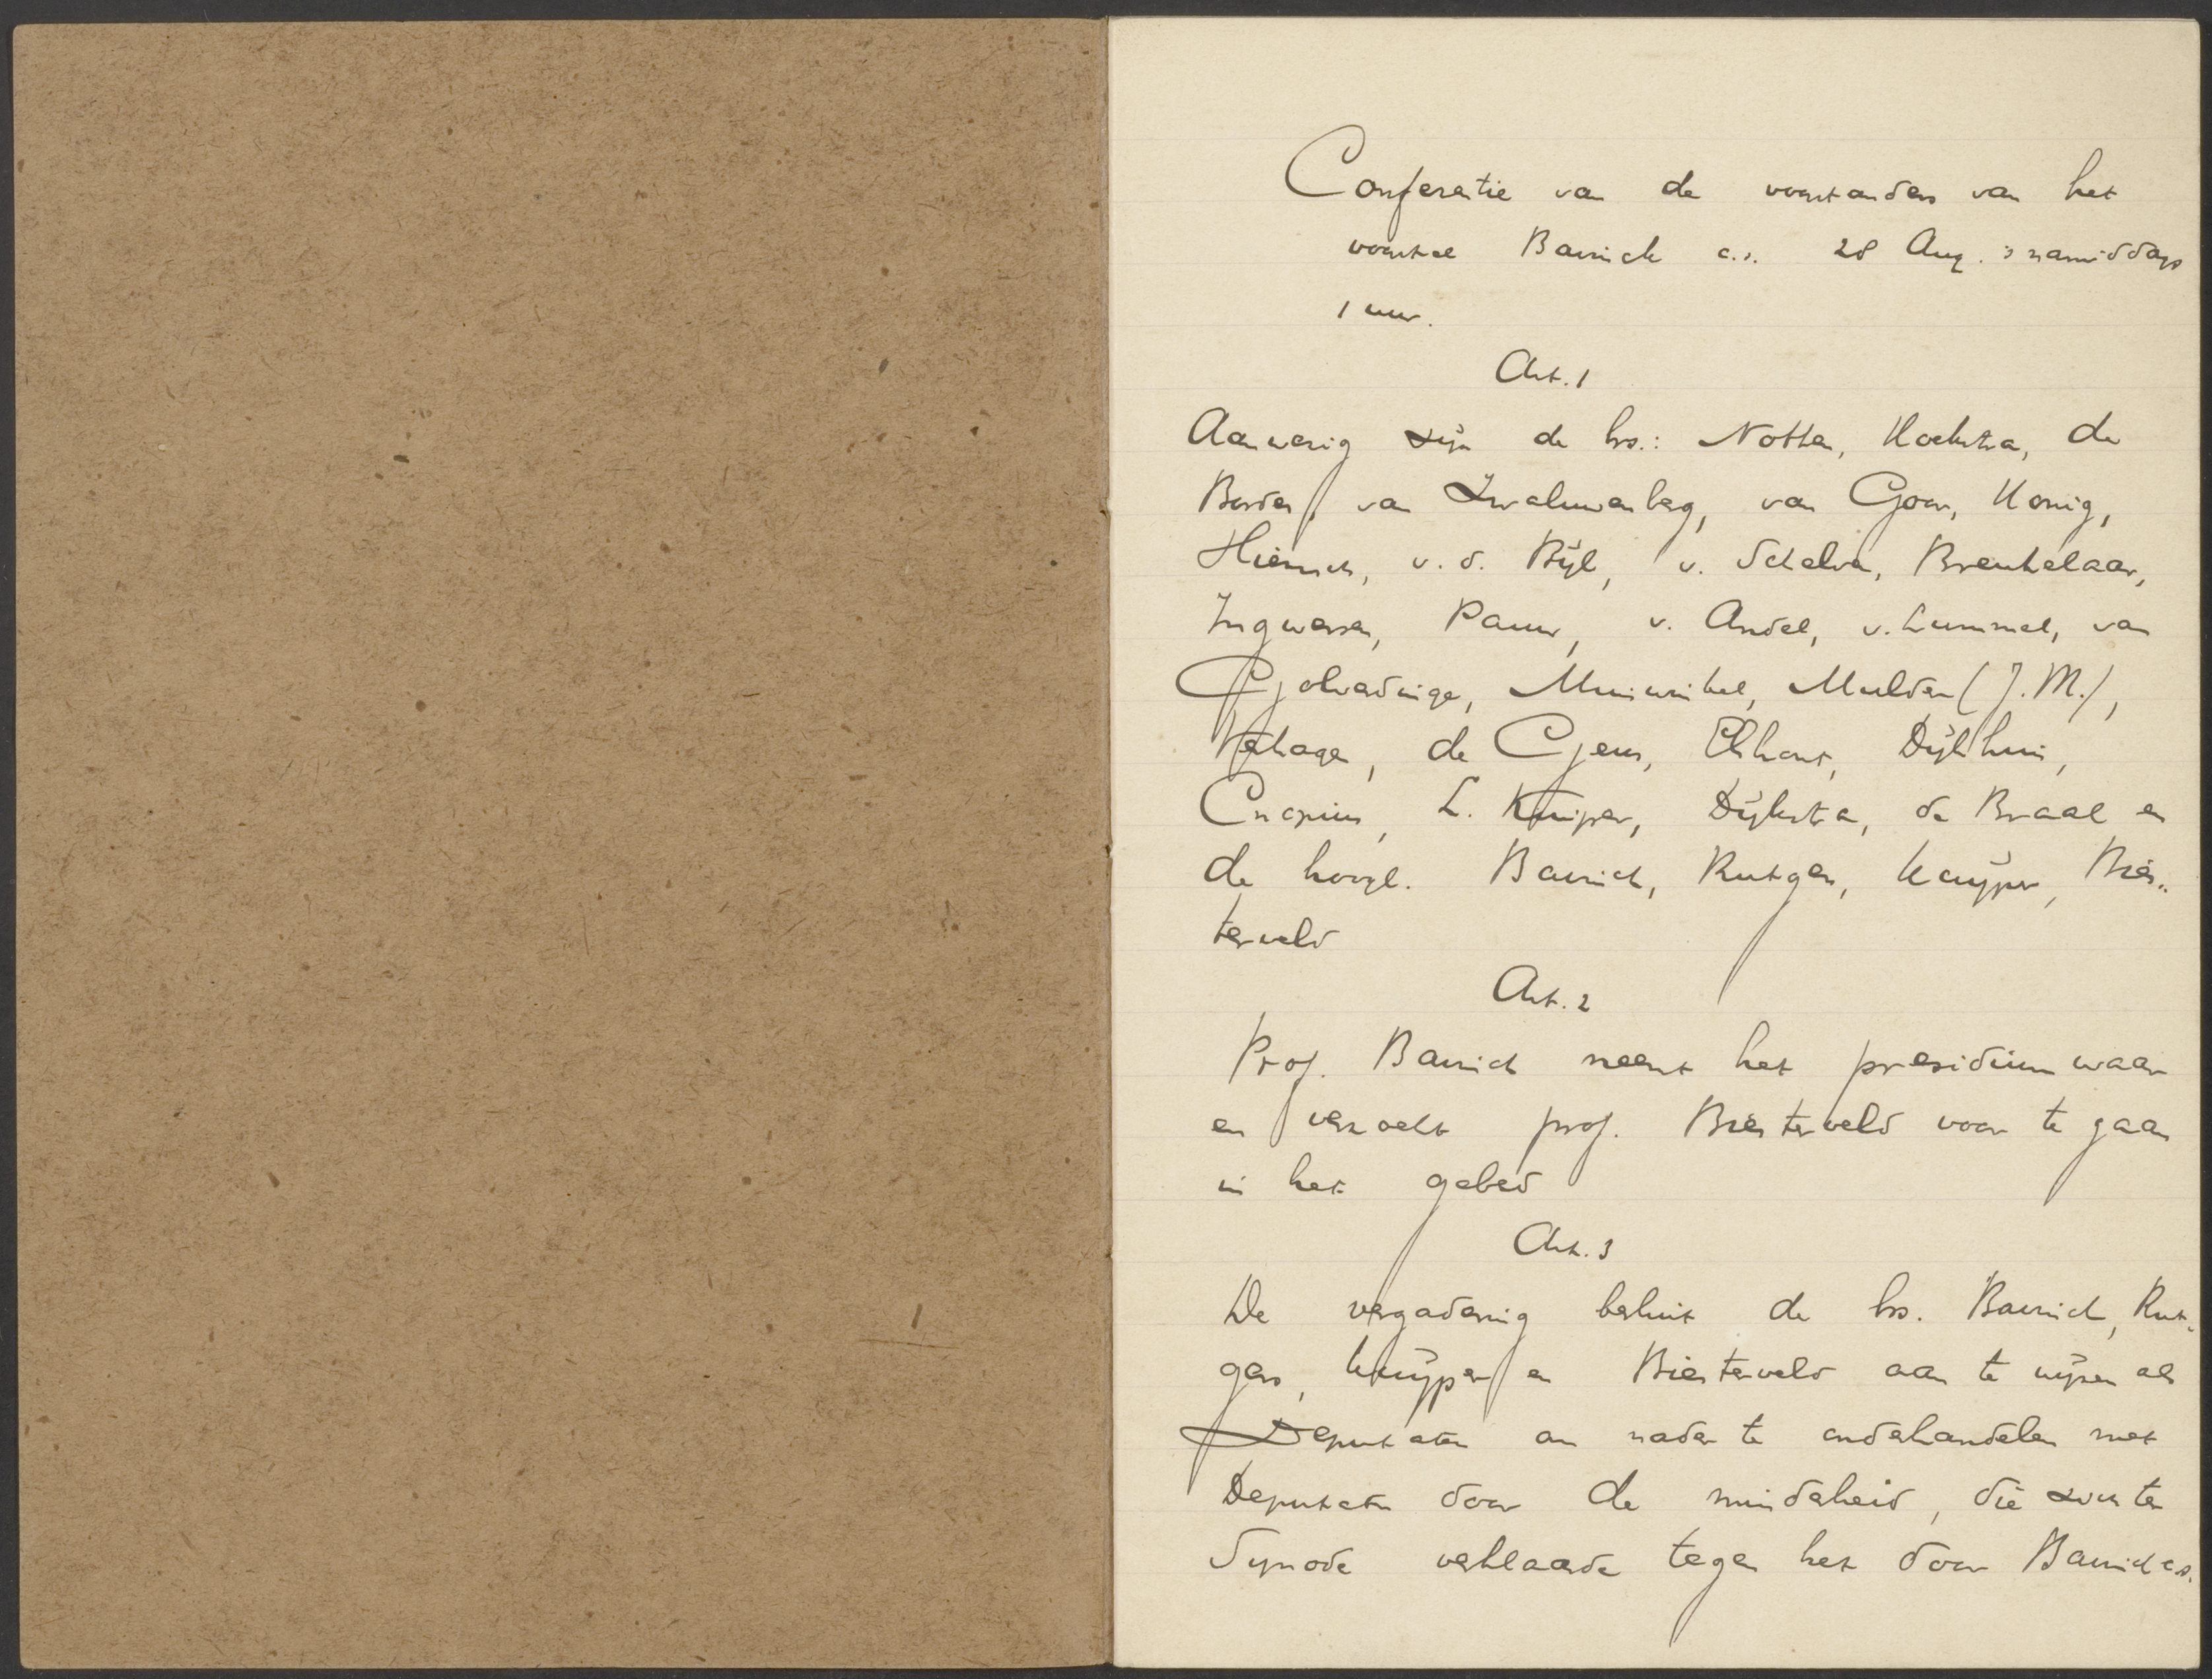 Conferentie van de voorstanders van het
voorstel Bavinck c.s. 28 Aug. 's namiddags
1 uur.
Art. 1
Aanwezig zijn de hrs.: Notten, Hoekstra, de
Border, van Zwaluwenberg, van Goor, Konig,
Hiensch, v. d. Bijl, v. Schelven, Breukelaar,
Ingwersen, Pauw, v. Andel, v. Lummel, van
Golverdinge, Mulder (J. M.),
Verhagen, de Geus, Elshout, Dijkhuis,
Cnopius, L. Kuiper, Dijkstra, de Braal en
de hoogl. Bavinck, Rutgers, Kuijper, Bies-
terveld
Art. 2
Prof. Bavinck neemt het presidium waar
en verzoekt prof. Biesterveld voor te gaan
in het gebed
Art. 3
De vergadering besluit de hrs. Bavinck, Rut-
gers, Kuijper en Biesterveld aan te wijzen als
Deputaten om nader te onderhandelen met
Deputaten door de minderheid, die zich ter
Synode verklaarde tegen het door Bavinck c.s.